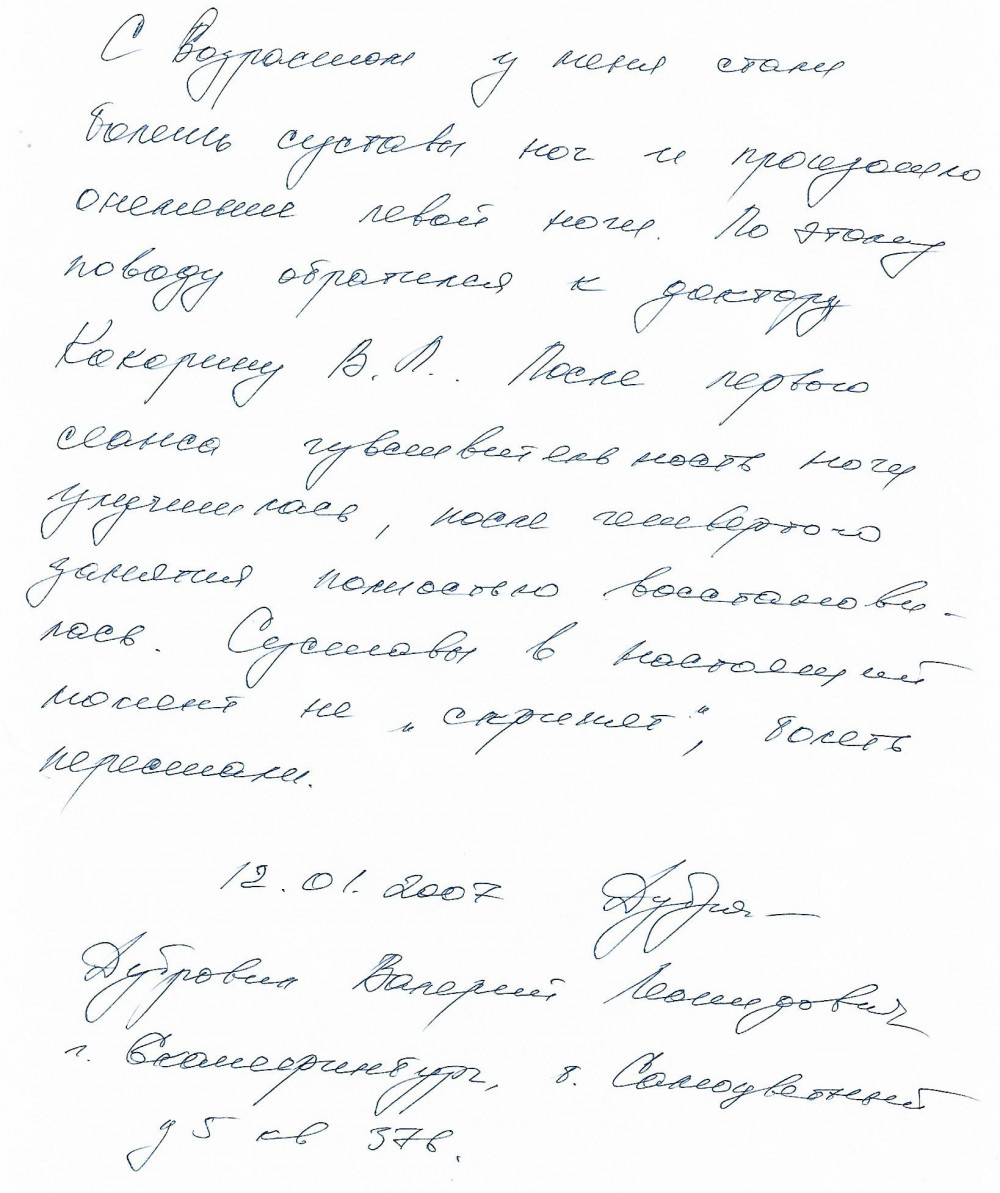 С Возрастом у меня стали
болеть суставы ног и произошло
онемение левой ноги. По этому
поводу обратился к доктору
Кокорину В.П.. После первого
сеанса чувствительность ноги
улучшилась, после четвертого
занятия полностью восстанови-
лась. Суставы в настоящий
момент не „скрипят“, болеть
перестали.
12.01.2007
Дубровин Валерий Леонидович
г. Екатеринбург, б. Самоцветный
д 5 кв 378.